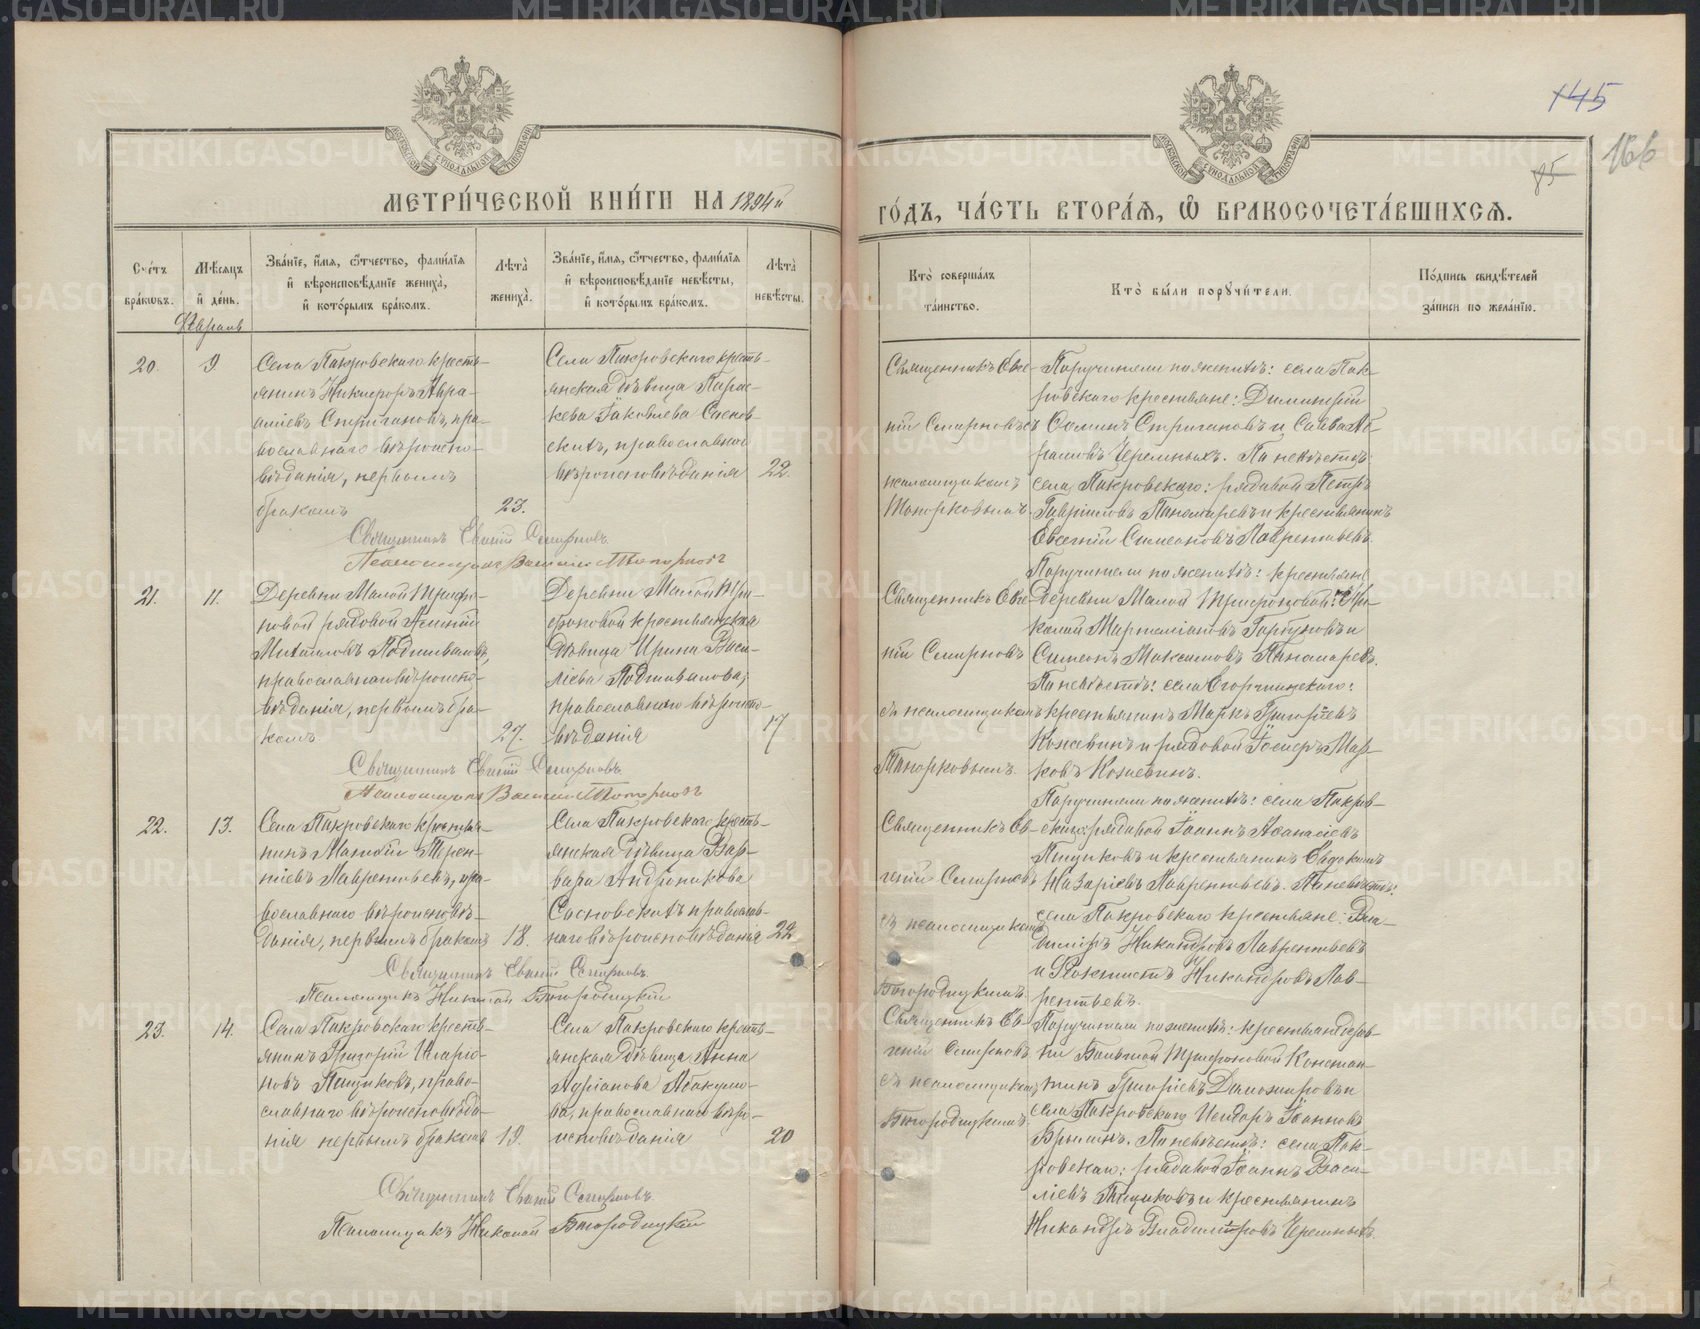 МЕТРИ́ЧЕСКОЙ КНИ́ГИ НА 1894й
ГО́ДЪ, ЧА́СТЬ ВТОРА́Я, Ѡ БРАКОСОЧЕТА́ВШИХСЯ.
145
85
166
Сче́тъ бра́кѡвъ.
Мѣ́сяцъ и де́нь.
Зва́нїе, и́мя, ѻ́тчество, фами́лїя и вѣроисповѣ́данїе жениха̀, и кото́рымъ бра́комъ.
Лѣта̀ жениха̀.
Зва́нїе, и́мя, ѻ́тчество, фами́лїя и вѣроисповѣ́данїе невѣ́сты, и кото́рымъ бра́комъ.
Лѣта̀ невѣ́сты.
Кто̀ соверша́лъ та́инство.
Кто̀ бы́ли порꙋчи́тели.
По́дпись свидѣ́телей за́писи по жела́нїю.
Февраль
20.
9.
Села Покровскаго кресть-
янинъ Никифоръ Авра-
амiевъ Стриганов, пра-
вославнаго вѣроиспо-
вѣданiя, первымъ
бракомъ
23.
Села Покровскаго кресть-
янская дѣвица Парас-
кева Iаковлева Соснов-
скихъ, православнаго
вѣроисповѣданiя
22.
Священникъ Евге-
нiй Смирновъ съ
псаломщикомъ
Топорковымъ
Поручители по женихѣ: села Пок-
ровскаго крестьяне: Димитрiй
Ѳоминъ Стригановъ и Савва Аб-
рамовъ Черемныхъ. По невѣстѣ:
села Покровскаго: рядовой Петръ
Гаврiиловъ Пономаревъ и крестьянинъ
Евгенiй Симеоновъ Лаврентьевъ.
Священникъ Евгенiй Смирновъ.
Псаломщикъ Василiй Топорковъ
21.
11.
Деревни Малой Трифо-
новой рядовой
Михаиловъ Подшиваловъ,
православнаго вѣроиспо-
вѣданiя, первымъ бра-
комъ
27.
Деревни Малой Три-
фоновой крестьянская
дѣвица Ирина Васи-
лiева Подшивалова,
православнаго вѣроиспо-
вѣданiя
17
Священникъ Евге-
нiй Смирновъ
съ псаломщикомъ
Топорковымъ.
Поручители по женихѣ: крестьяне
деревни Малой Трифоновой: Ни-
колай Мартемiановъ Горбуновъ и
Симеонъ Максимовъ Пономаревъ.
По невѣстѣ: села Егоршинскаго:
крестьянинъ Маркъ Григорiевъ
Кожевинъ и рядовой Iосифъ Мар-
ковъ Кожевинъ.
Священникъ Евгенiй Смирновъ.
Псаломщикъ Василiй Топорковъ
22.
13.
Села Покровскаго крестья-
нинъ Матѳiй Терен-
тiевъ Лаврентьевъ, пра-
вославнаго вѣроисповѣ-
данiя, первымъ бракомъ
18.
Села Покровскаго кресть-
янская дѣвица Вар-
вара Андроникова
Сосновскихъ православ-
наго вѣроисповѣданiя
22
Священникъ Ев-
генiй Смирновъ
съ псаломщикомъ
Богородицкимъ.
Поручители по женихѣ: села Покров-
скаго: рядовой Iоаннъ Аѳанасiевъ
Пищиковъ и крестьянинъ Евдокимъ
Назарiевъ Лаврентьевъ. По невѣстѣ:
села Покровскаго крестьяне: Вла-
димiръ Никандровъ Лаврентьевъ
и Ѳеоктистъ Никандровъ Лав-
рентьевъ.
Священникъ Евгенiй Смирновъ.
Псаломщикъ Николай Богородицкiй
23.
14.
Села Покровскаго кресть-
янинъ Григорiй Иларiо-
новъ Пищиковъ, право-
славнаго вѣроисповѣда-
нiя первымъ бракомъ
19.
Села Покровскаго кресть-
янская дѣвица Анна
Адрiанова Абакумо-
ва, православнаго вѣро-
исповѣданiя
20
Священникъ Ев-
генiй Смирновъ
съ псаломщикомъ
Богородицкимъ.
Поручители по женихѣ: крестьяне дерев-
ни Большой Трифоновой Констан-
тинъ Григорiевъ Доможировъ и
села Покровскаго Исидоръ Iоанновъ
Брылинъ. По невѣстѣ: села Пок-
ровскаго: рядовой Iоаннъ Васи-
лiевъ Пищиковъ и крестьянинъ
Никандръ Владимiровъ Черемныхъ.
Священникъ Евгенiй Смирновъ.
Псаломщикъ Николай Богородицкiй
METRIKI.GASO-URAL.RU